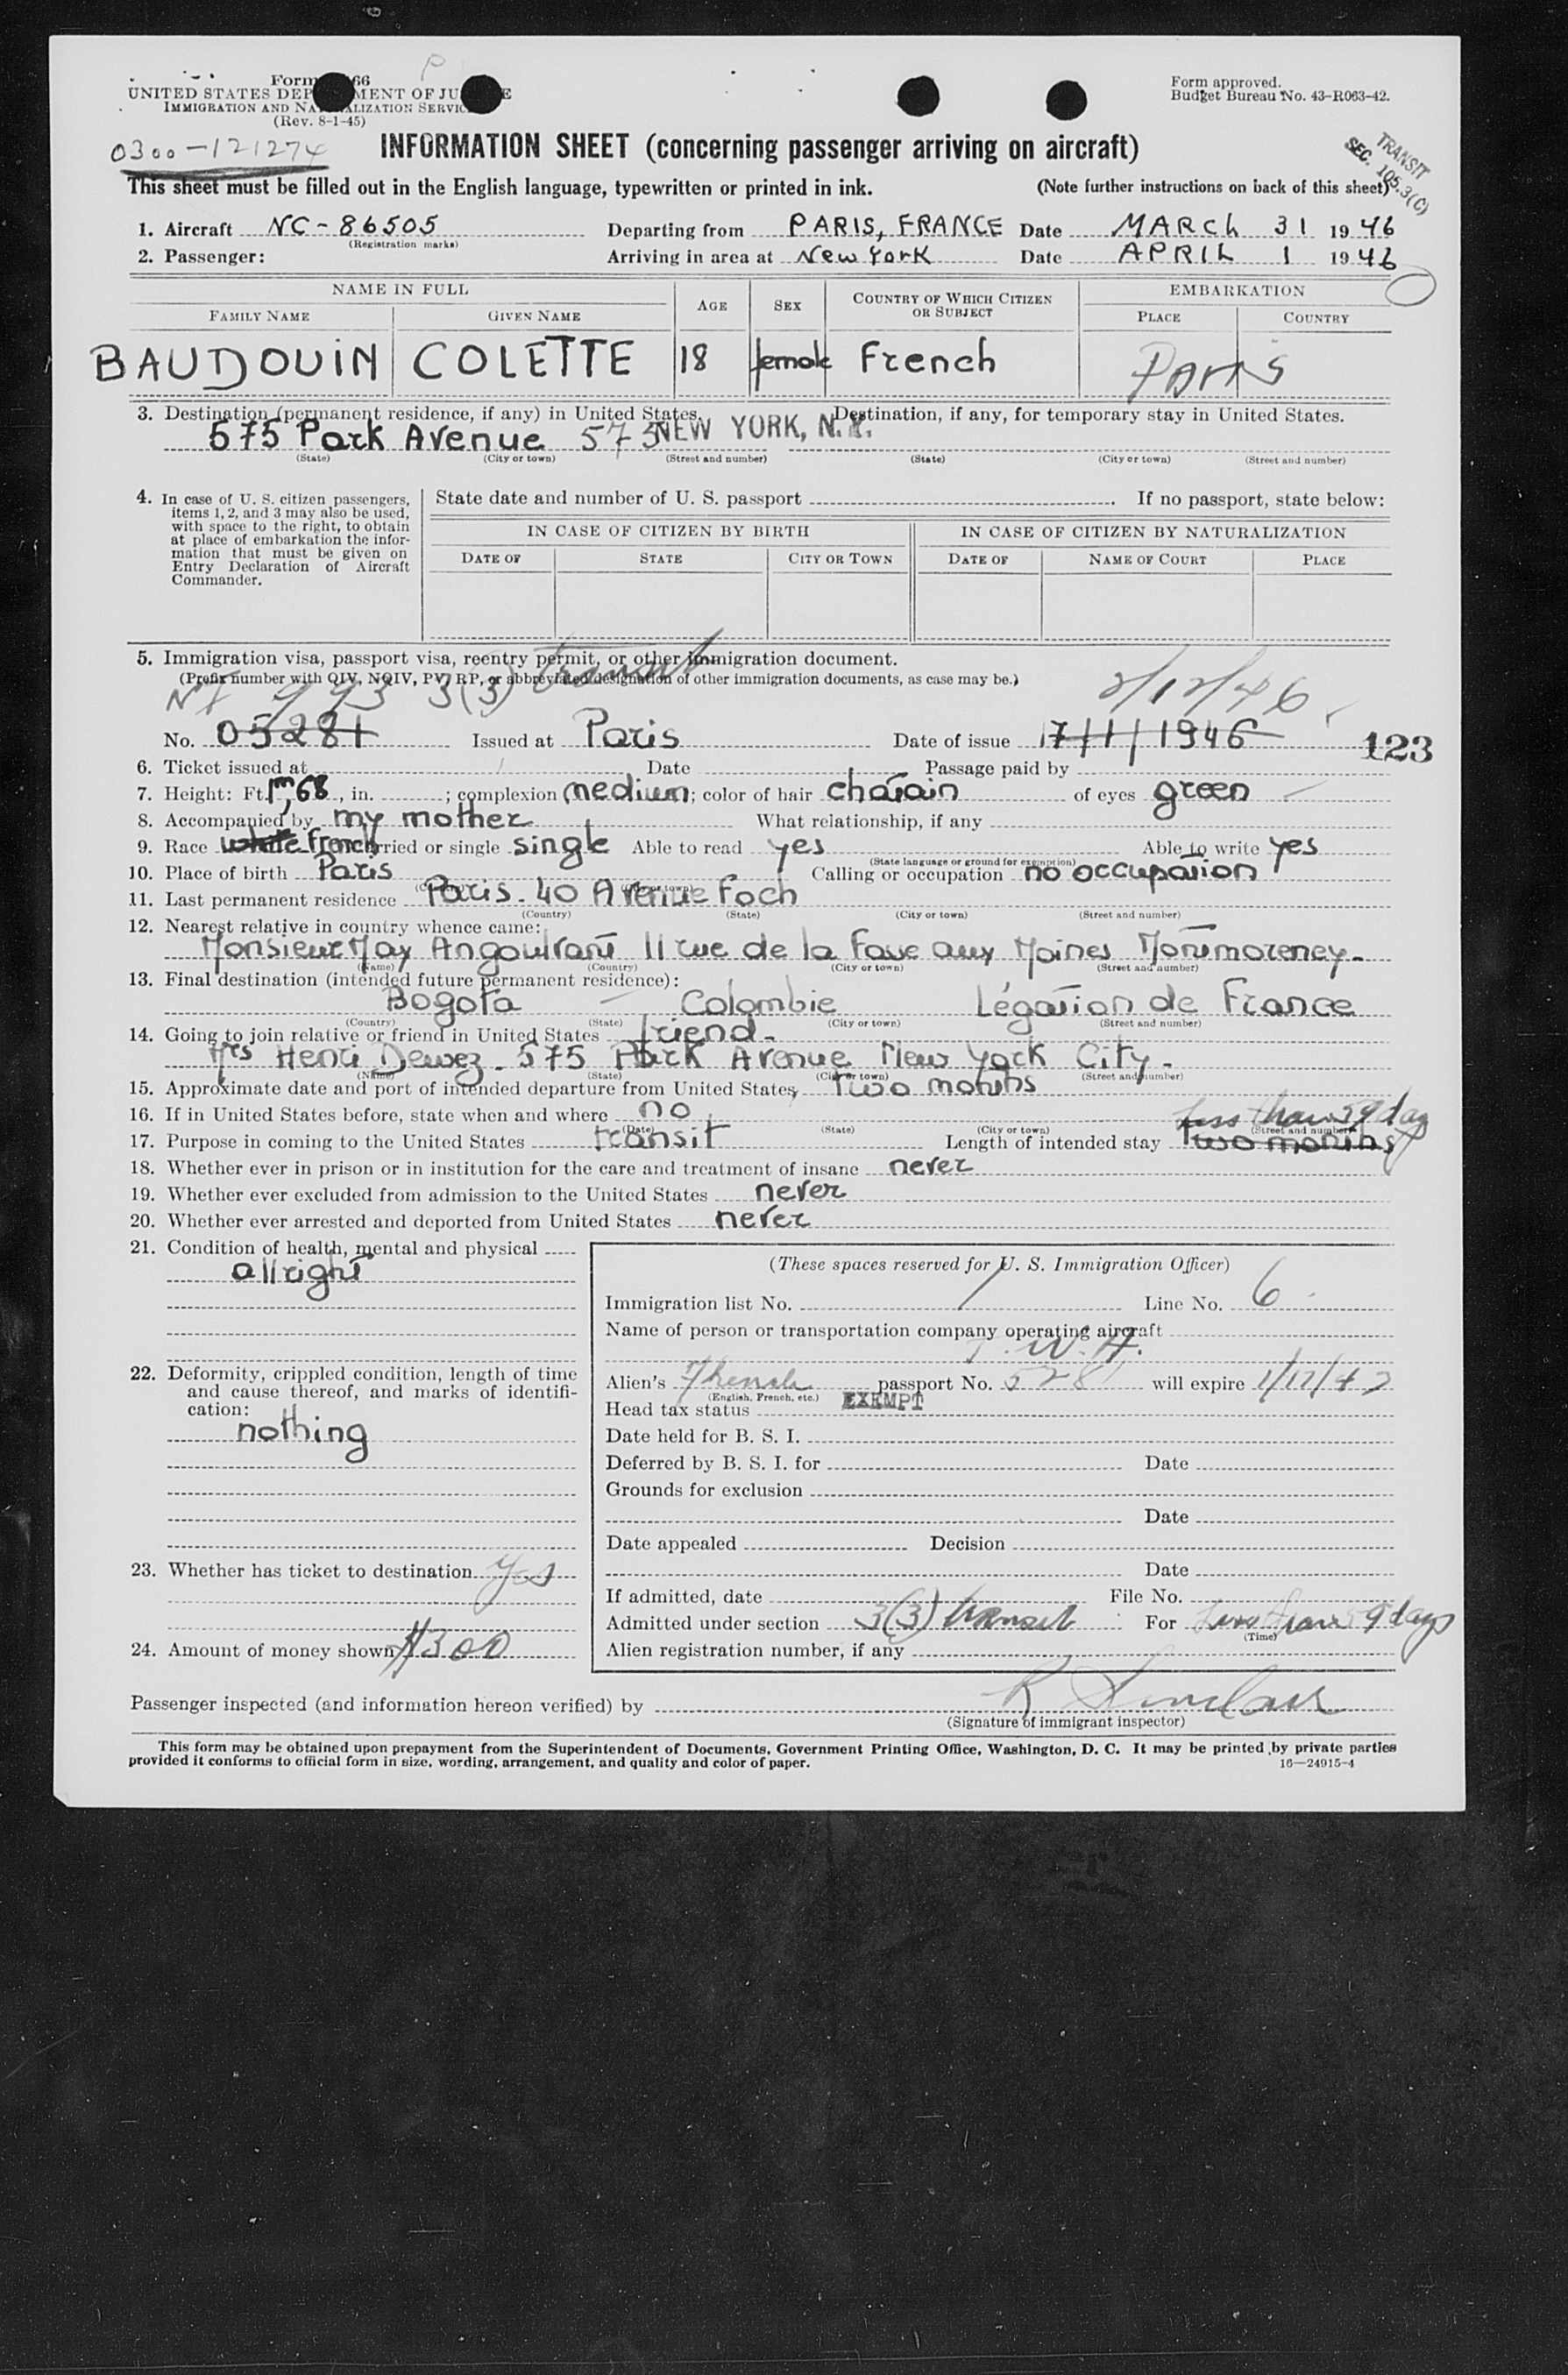 P
Form 66
UNITED STATES DEP MENT OF JU E
IMMIGRATION AND NA ALIZATION SERVIC
(Rev. 8-1-45)
Form approved.
Budget Bureau No. 43-R063-42.
0300-121274
INFORMATION SHEET (concerning passenger arriving on aircraft)
TRANSIT
SEC. 105.3(C)
This sheet must be filled out in the English language, typewritten or printed in ink. (Note further instructions on back of this sheet)
1. Aircraft NC-86505 Departing from PARIS, FRANCE Date MARCH 31 1946
(Registration marks)
2. Passenger: Arriving in area at New York Date APRIL 1 1946
NAME IN FULL AGE SEX COUNTRY OF WHICH CITIZEN OR SUBJECT EMBARKATION
FAMILY NAME GIVEN NAME PLACE COUNTRY
BAUDOUIN COLETTE 18 female French PARIS
3. Destination (permanent residence, if any) in United States. Destination, if any, for temporary stay in United States.
575 Park Avenue 575 NEW YORK, N.Y.
(State) (City or town) (Street and number) (State) (City or town) (Street and number)
4. In case of U. S. citizen passengers, items 1, 2, and 3 may also be used, with space to the right, to obtain at place of embarkation the information that must be given on Entry Declaration of Aircraft Commander.
State date and number of U. S. passport . If no passport, state below:
IN CASE OF CITIZEN BY BIRTH IN CASE OF CITIZEN BY NATURALIZATION
DATE OF STATE CITY OR TOWN DATE OF NAME OF COURT PLACE
5. Immigration visa, passport visa, reentry permit, or other immigration document.
(Prefix number with QIV, NQIV, PV, RP, or abbreviated designation of other immigration documents, as case may be.)
993 3(3) transit 2/12/46
No. 05281 Issued at Paris Date of issue 17/1/1946 123
6. Ticket issued at Date Passage paid by
7. Height: Ft. 1m,68, in. ; complexion medium; color of hair chatain of eyes green
8. Accompanied by my mother What relationship, if any
9. Race white French rried or single single Able to read yes Able to write yes
(State language or ground for exemption)
10. Place of birth Paris Calling or occupation no occupation
11. Last permanent residence Paris. 40 Avenue Foch
(Country) (State) (City or town) (Street and number)
12. Nearest relative in country whence came:
Monsieur Max Angoulvant 11 rue de la Fosse aux Moines Montmorency.
(Name) (Country) (City or town) (Street and number)
13. Final destination (intended future permanent residence):
Bogota – Colombie Légation de France
(Country) (State) (City or town) (Street and number)
14. Going to join relative or friend in United States friend.
Mrs Henri Dewez. 575 Park Avenue New York City.
(Name) (State) (City or town) (Street and number)
15. Approximate date and port of intended departure from United States, two months
16. If in United States before, state when and where no
(Date) (State) (City or town) (Street and number)
less than 59 days
17. Purpose in coming to the United States transit Length of intended stay two months
18. Whether ever in prison or in institution for the care and treatment of insane never
19. Whether ever excluded from admission to the United States never
20. Whether ever arrested and deported from United States never
21. Condition of health, mental and physical
allright
22. Deformity, crippled condition, length of time and cause thereof, and marks of identification:
nothing
23. Whether has ticket to destination yes
24. Amount of money shown $300
(These spaces reserved for U. S. Immigration Officer)
Immigration list No. 1 Line No. 6
Name of person or transportation company operating aircraft
T. W. A.
Alien's French passport No. 5281 will expire 1/17/47
(English, French, etc.)
Head tax status EXEMPT
Date held for B. S. I.
Deferred by B. S. I. for Date
Grounds for exclusion
Date
Date appealed Decision
Date
If admitted, date File No.
Admitted under section 3(3) transit For less than 59 days
(Time)
Alien registration number, if any
Passenger inspected (and information hereon verified) by R
(Signature of immigrant inspector)
This form may be obtained upon prepayment from the Superintendent of Documents, Government Printing Office, Washington, D. C. It may be printed by private parties
provided it conforms to official form in size, wording, arrangement, and quality and color of paper. 16—24915-4